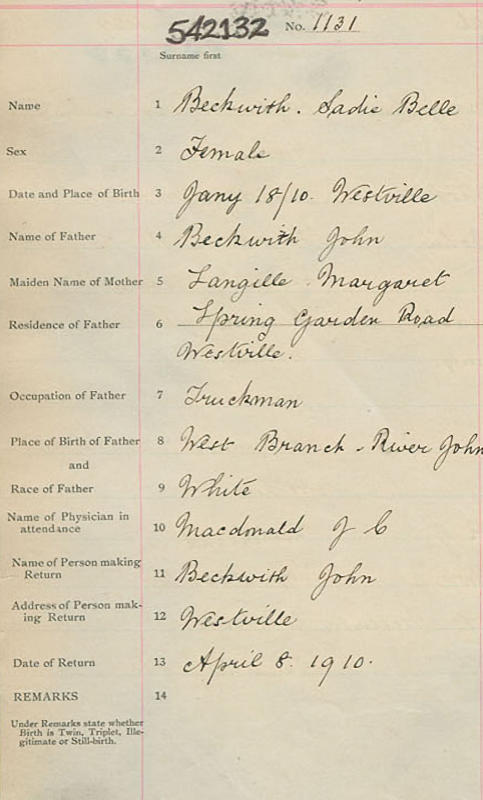 542132 No. 1131
Surname first
Name 1 Beckwith. Sadie Belle
Sex 2 Female
Date and Place of Birth 3 Jany 18/10. Westville
Name of Father 4 Beckwith John
Maiden Name of Mother 5 Langille. Margaret
Residence of Father 6 Spring Garden Road
Westville.
Occupation of Father 7 Truckman
Place of Birth of Father 8 West Branch - River John
and
Race of Father 9 White
Name of Physician in
attendance 10 Macdonald J C
Name of Person making
Return 11 Beckwith John
Address of Person mak-
ing Return 12 Westville
Date of Return 13 April 8. 1910.
REMARKS 14
Under Remarks state whether
Birth is Twin, Triplet, Ille-
gitimate or Still-birth.